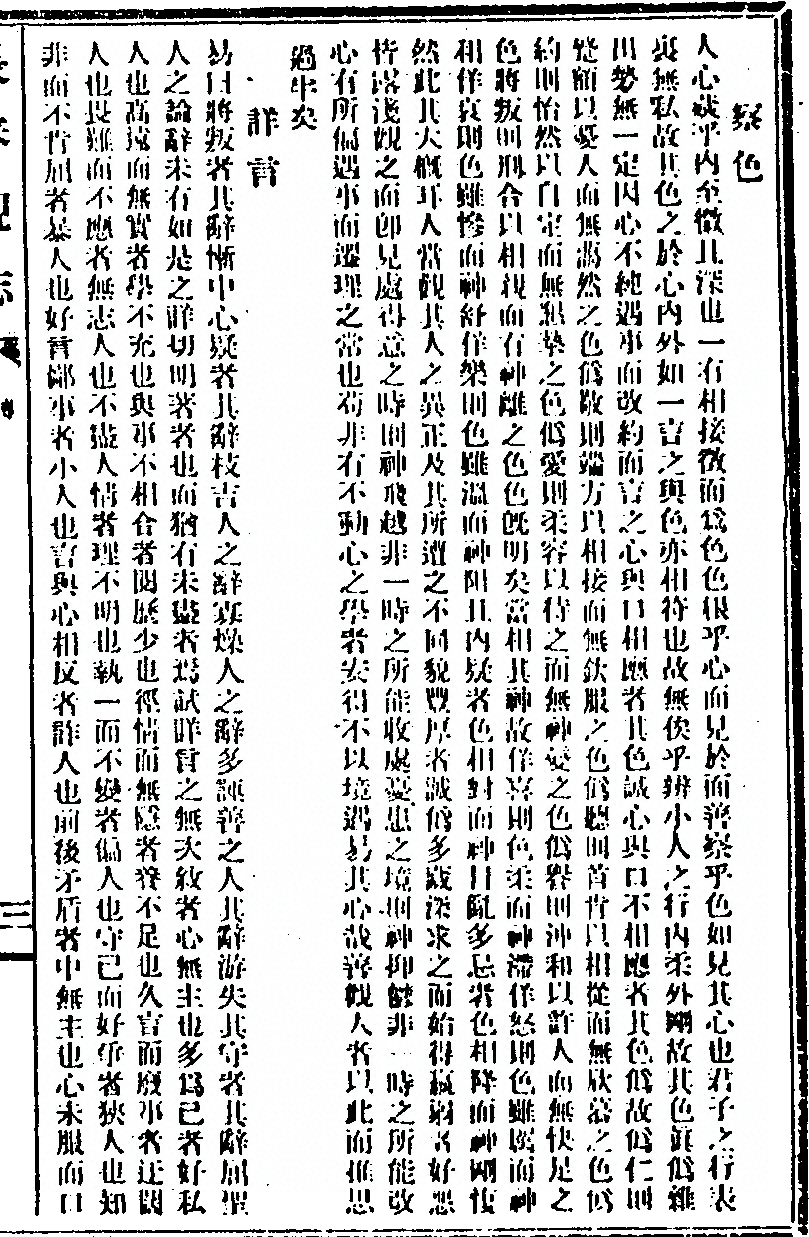 察色
人心藏乎內至微且深也一有相接徵而爲色色根乎心而見於面善察乎色如見其心也君子之行表
與無私故其色之於心內外如一言之與色亦相符也故無俟乎辨小人之行內柔外剛故其色眞僞雜
出勢無一定因心不純遇事而改約而言之心與口相應者其色誠心與口不相應者其色僞故僞仁則
蹙額以憂人而無藹然之色僞敬則端方以相接而無欽服之色僞聽則首肯以相從而無欣慕之色僞
約則恬然以自定而無之色僞愛則柔容以待之而無神變之色僞譽則沖和以許人而無快足之
色將叛則合以相視而有神離之色色旣明矣當相其神故佯喜則色柔而神滯佯怒則色雖厲而神
和佯哀則色雖慘而神舒佯樂則色雖溫而神阻且內疑者色相對而神目亂多忌者色相降而神剛愎
然此其大槪耳人當觀其人之異正及其所遭之不同貌豐厚者誠僞多藏深求之而始得羸弱者好惡
皆露淺觀之而卽見處得意之時則神飛越非一時之所能收處憂患之境則神抑鬱非一時之所能改
心有所偏遇事而遷理之常也苟非有不動心之學者安得不以境遇易其心哉善觀人者以此而推思
過半矣
詳言
易曰將叛者其辭慚中心疑者其辭枝吉人之辭寡燥人之辭多誣善之人其辭游失其守者其辭屈聖
人之論辭未有如是之詳切明著者也而猶有未盡者焉試詳言之無次敘者心無主也多爲己者好私
人也高遠而無實者學不充也與事不相合者閱歷少也徑情而無隱者養不足也久言而廢事者迂闊
人也畏難而不應者無志人也不盡人情者理不明也執一而不變者偏人也守己而好爭者狹人也知
非而不肯屈者暴人也好言鄙事者小人也言與心相反者詐人也前後矛盾者中無主也心未服而口
三